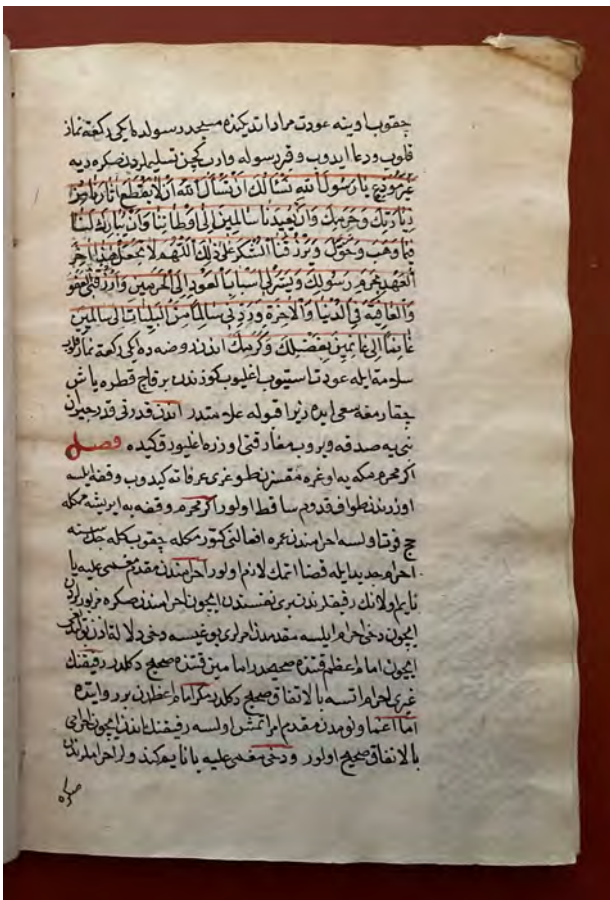 چقوب اوینه عودت مراد اتدیکنده مسجد رسولده ایکی رکعت نماز
قلوب ودعا ایدوب وقبر رسوله واردقچن تسلیملردن صکره دیه
غیر مودع یا رسول الله نسألك ان تسأل الله ان لا یقطع اثارنا من
زیارتك وحرمك وان یعیدنا سالمین الی اوطاننا وان یبارك لنا
فیما وهب وخول ویرزقنا الشکر علی ذلك اللهم لا تجعل هذا اخر
العهد بحرم رسولك ویسر لی اسبابا العود الی الحرمین وارزقنی العفو
والعافیة فی الدنیا والاخرة وردنی سالما من البلیات الی سالمین
غانما الی غانمین بفضلك وکرمك اندن روضه ده ایکی رکعت نماز قلوب
سلامت ایله عودت استیوب اغلیوب کوزندن بر قاچ قطره یاش
چقارمغه سعی ایده زیرا قبوله علامتدر اندن قدرتی قدر جیران
نبی یه صدقه ویروب مفارقتی اوزره اغلیورق کیده فصل
اکر محرم مکه یه اوغرامقسزن طوغری عرفاته کیدوب وقفه ایلسه
اوزرندن طواف قدوم ساقط اولور اکر محرم وقفه یه ایریشه مکله
حج فوت اولسه احرامندن عمره افعالنی کتورمکله چقوب کله جك سنه
احرام جدید ایله قضا اتمك لازم اولور احرامندن مقدم مغمی علیه یا
نایم اولانك رفیقلرندن بری نفسندن ایچون احرامندن صکره مزبورلردن
ایچون دخی احرام ایلسه مقدمدن امرلری یوغیسه دخی دلالة اذن اولدیغی
ایچون امام اعظم قتنده صحیحدر امامین قتنده صحیح دکلدر رفیقنك
غیری احرام اتسه بالاتفاق صحیح دکلدر مکر امام اعظمدن بر روایتده
اما اغما ونومدن مقدم امر اتمش اولسه رفیقنك انلر ایچون احرامی
بالاتفاق صحیح اولور ودخی مغمی علیه یا نایم کندولر احراملرندن
صکره